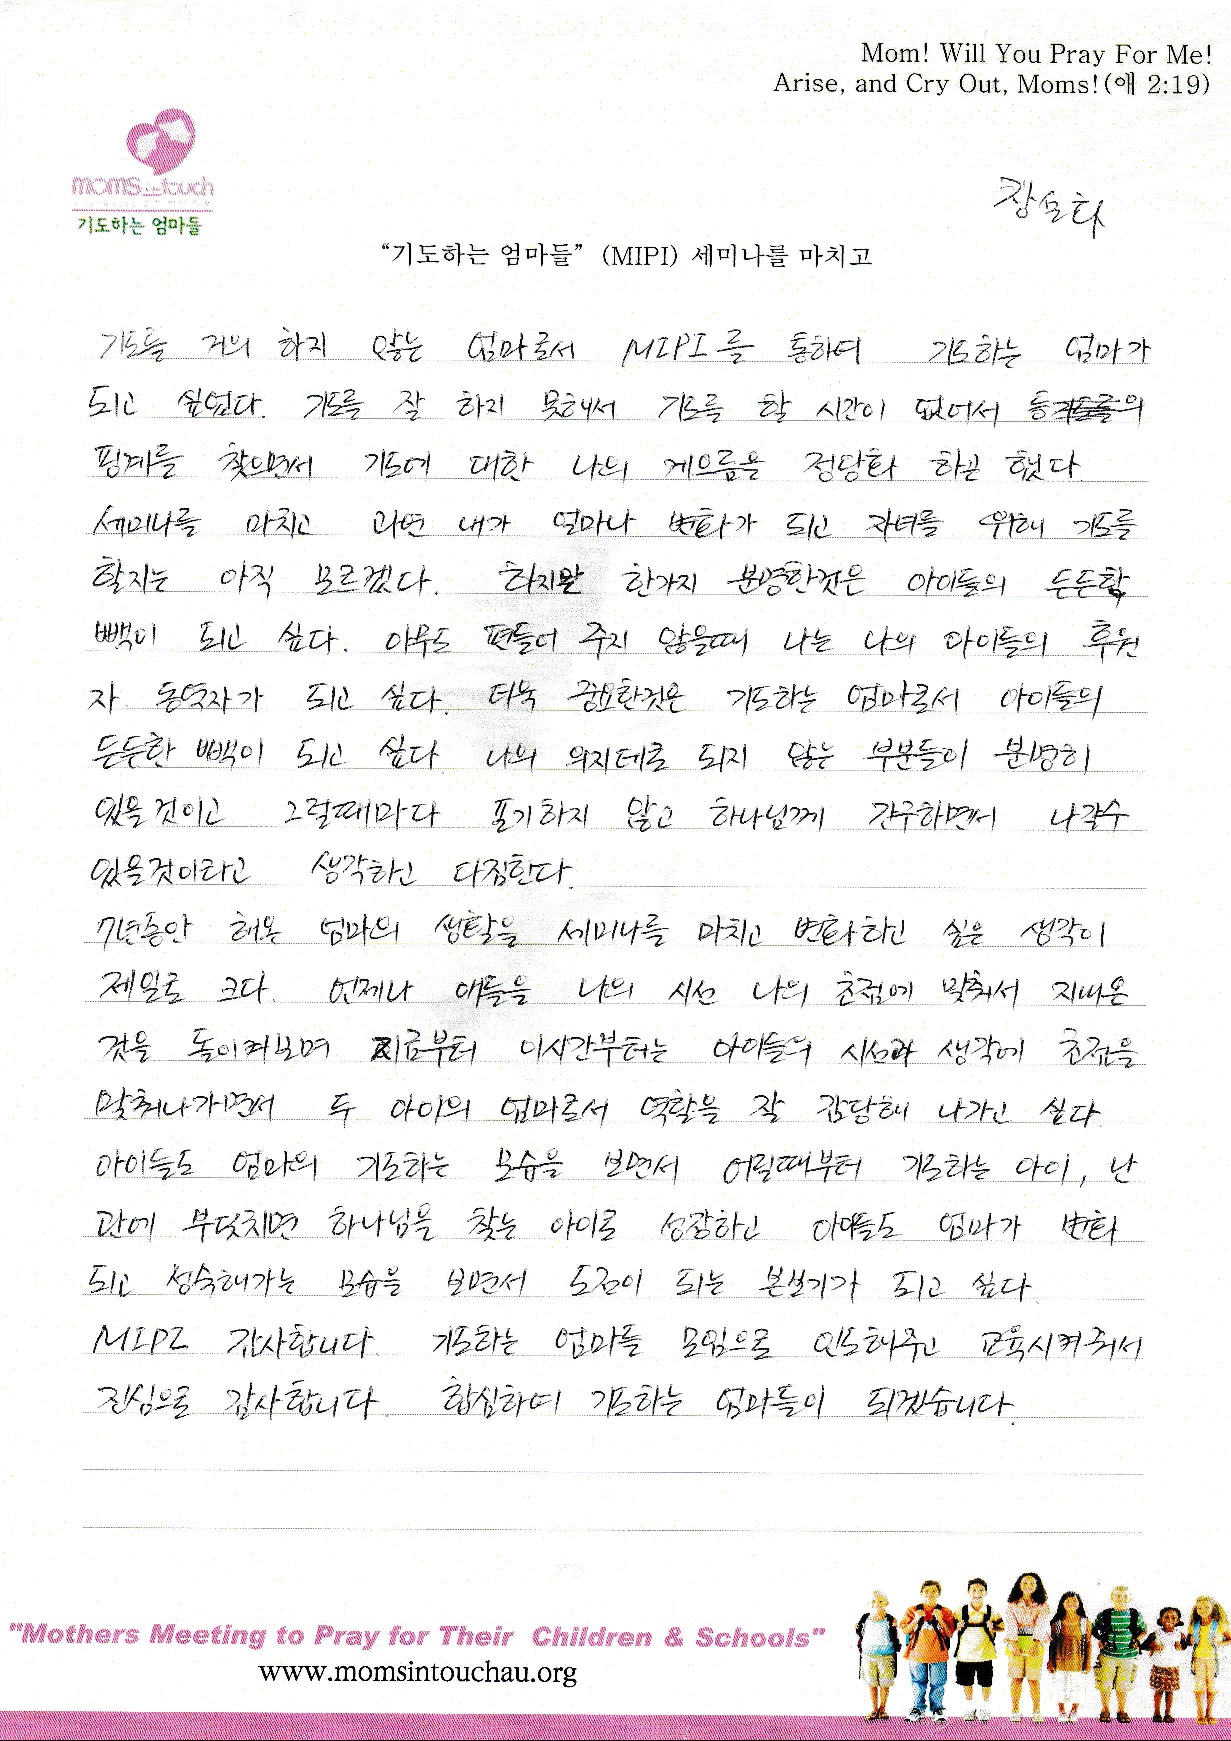 Mom! Will You Pray For Me!
Arise, and Cry Out, Moms!(애 2:19)
moms in touch
기도하는 엄마들
장설화
“기도하는 엄마들” (MIPI) 세미나를 마치고
기도를 거의 하지 않는 엄마로서 MIPI를 통하여 기도하는 엄마가
되고 싶었다. 기도를 잘 하지 못해서 기도를 할 시간이 없어서 등의
핑계를 찾으면서 기도에 대한 나의 게으름을 정당화 하곤 했다
세미나를 마치고 과연 내가 얼마나 변화가 되고 자녀를 위해 기도를
할지는 아직 모르겠다. 하지만 한가지 분명한것은 아이들의 든든한
빽이 되고 싶다. 아무도 편들어 주지 않을때 나는 나의 아이들의 후원
자 동역자가 되고 싶다. 더욱 중요한것은 기도하는 엄마로서 아이들의
든든한 빽이 되고 싶다 나의 의지데로 되지 않는 부분들이 분명히
있을것이고 그럴때마다 포기하지 않고 하나님께 간구하면서 나갈수
있을것이라고 생각하고 다짐한다.
7년동안 해온 엄마의 생활을 세미나를 마치고 변화하고 싶은 생각이
제일로 크다. 언제나 애들을 나의 시선 나의 초점에 맞춰서 지내온
것을 돌이켜보며 지금부터 이시간부터는 아이들의 시선과 생각에 초점을
맞춰나가면서 두 아이의 엄마로서 역할을 잘 감당해 나가고 싶다
아이들도 엄마의 기도하는 모습을 보면서 어릴때부터 기도하는 아이, 난
관에 부딪치면 하나님을 찾는 아이로 성장하고 아이들도 엄마가 변화
되고 성숙해가는 모습을 보면서 도전이 되는 본보기가 되고 싶다
MIPI 감사합니다 기도하는 엄마들 모임으로 인도해주고 교육시켜줘서
진심으로 감사합니다. 합심하여 기도하는 엄마들이 되겠습니다.
"Mothers Meeting to Pray for Their Children & Schools"
www.momsintouchau.org